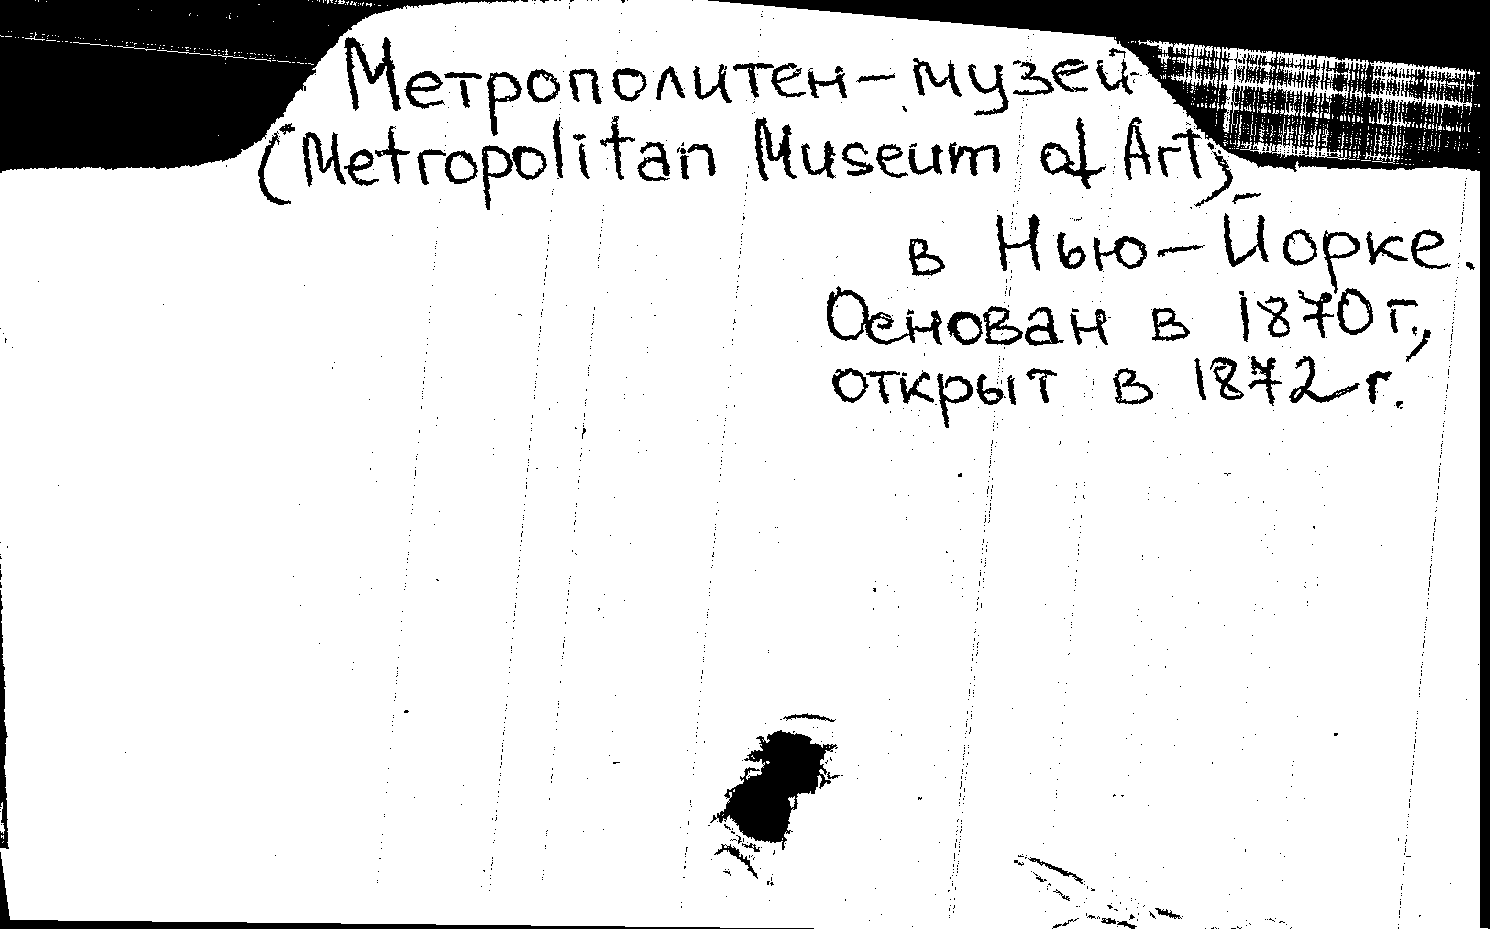 Метрополитен-музей
(Metropolitan Museum of Art)
в Нью-Йорке.
Основан в 1870 г.,
открыт в 1872 г.